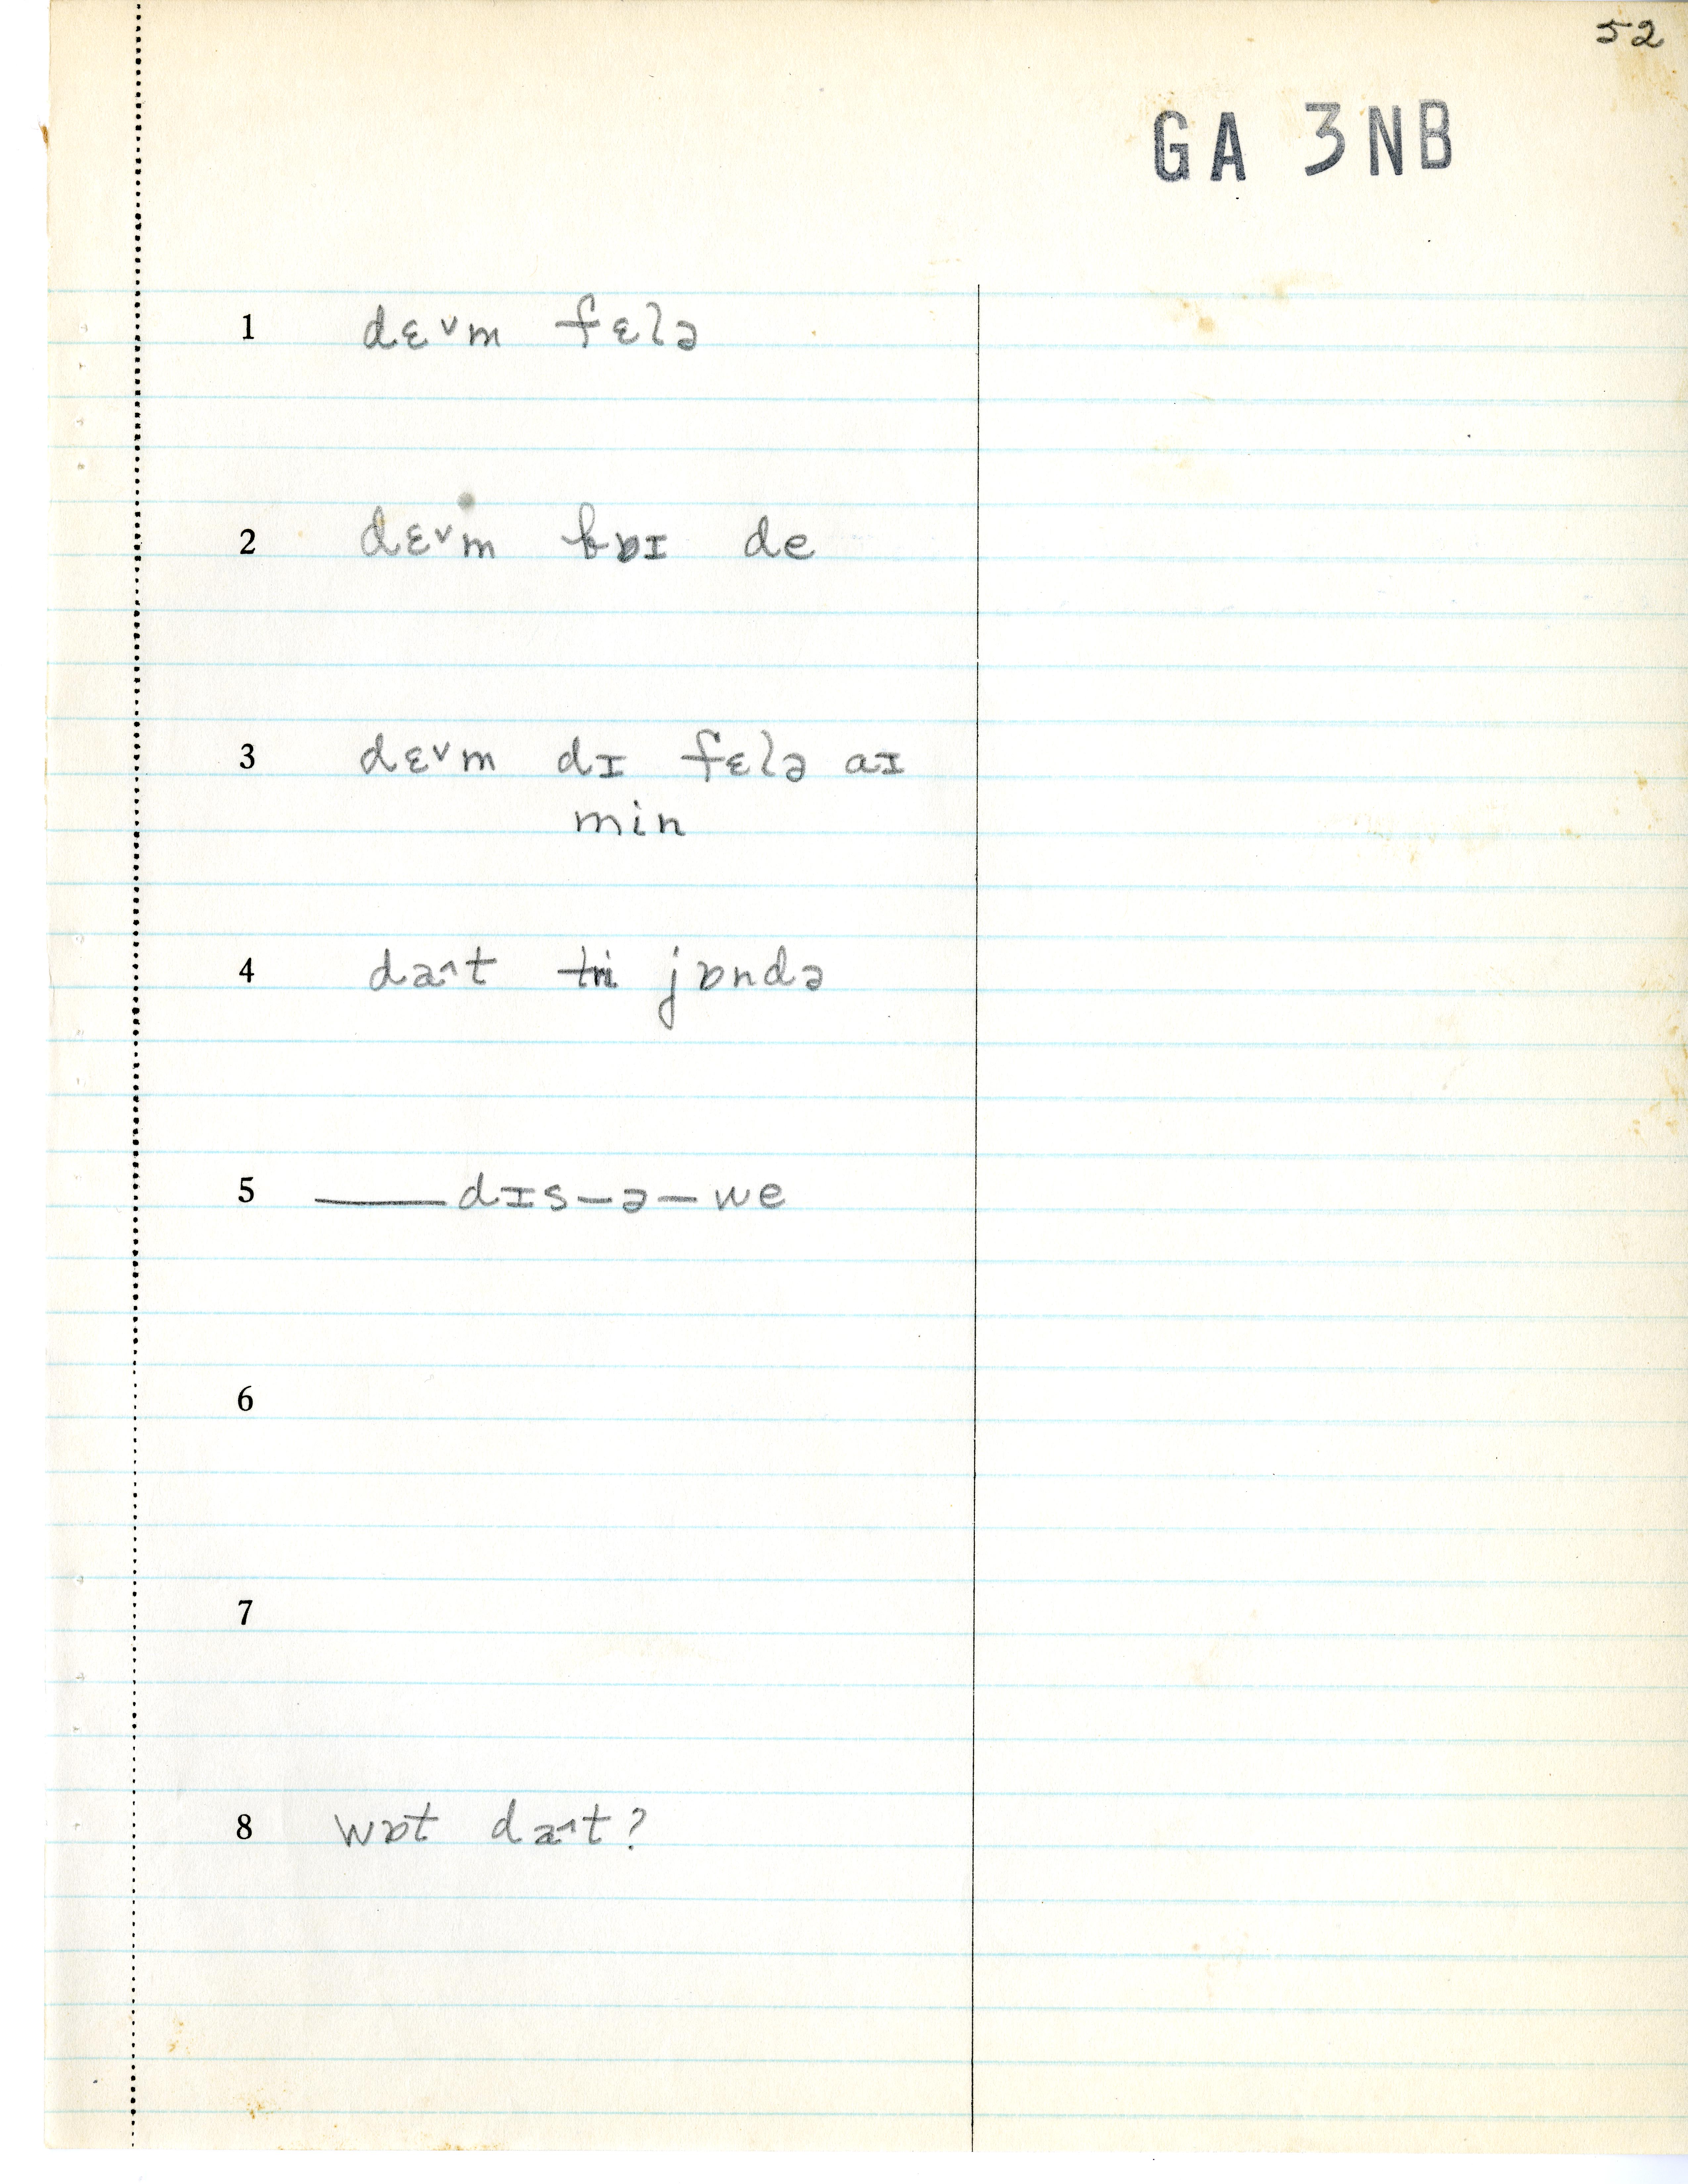 52
GA 3NB
1 dɛ˅m fɛlə
2 dɛ˅m bɒɪ de
3 dɛ˅m dɪ fɛlə aɪ
min
4 da˄t tri jɒndə
5 —dɪs–ə–we
6
7
8 wɒt da˄t?